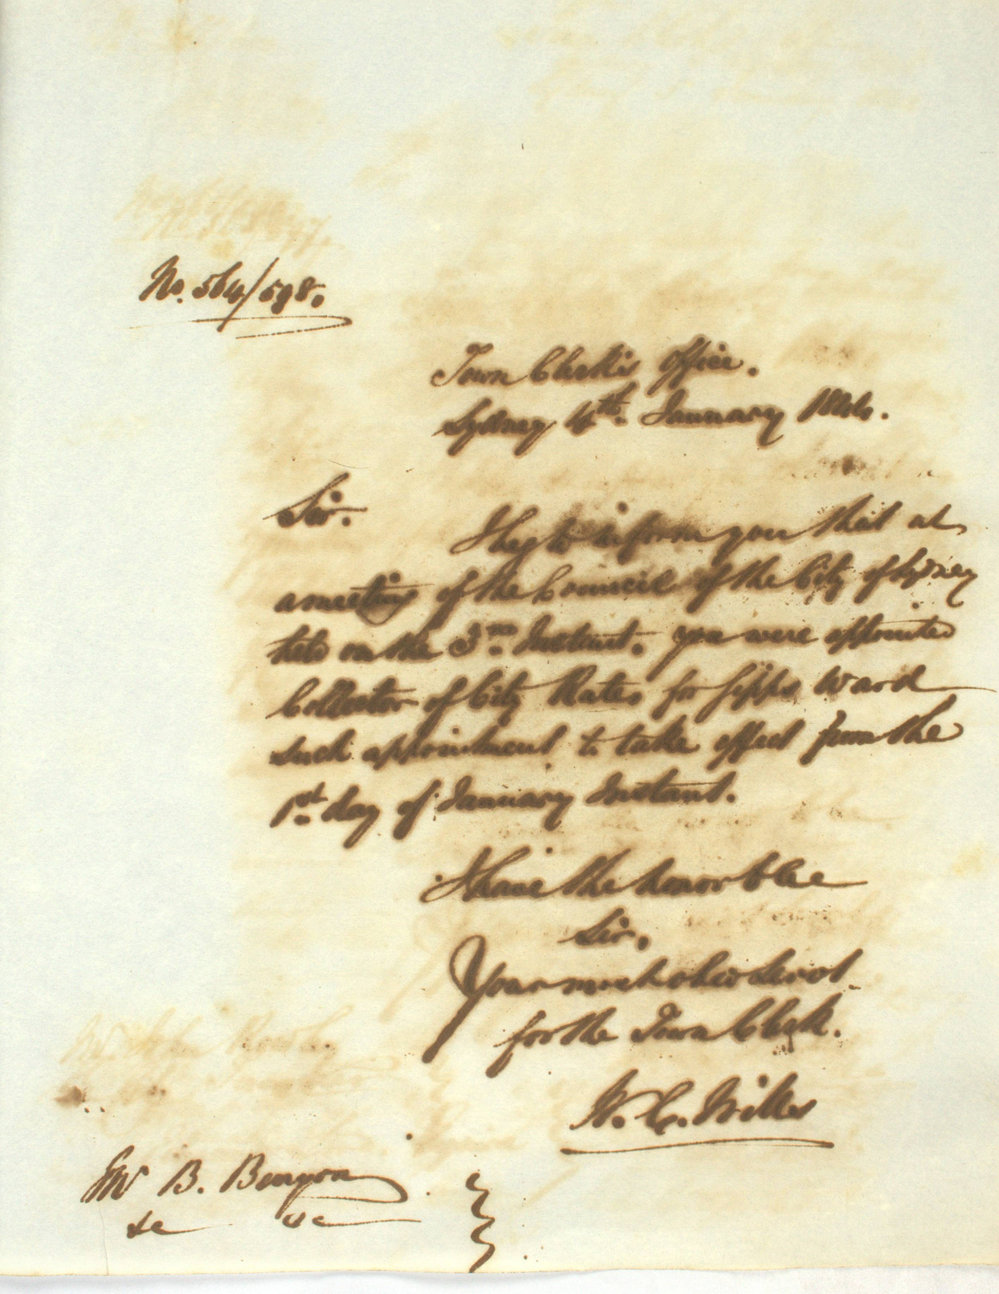 No. 564/598.
Town Clerk's Office.
Sydney 4th. January 1844.
Sir.
I beg to inform you that at
a meeting of the Council of the City of Sydney
held on the 3rd. Instant. you were appointed
Collector of City Rates for Gipps Ward
such appointment to take effect from the
1st. day of January Instant.
I have the honor to be
Sir,
Your most obed Servt.
for the Town Clerk.
W. C. Wills
Mr B. Benyon
&c &c